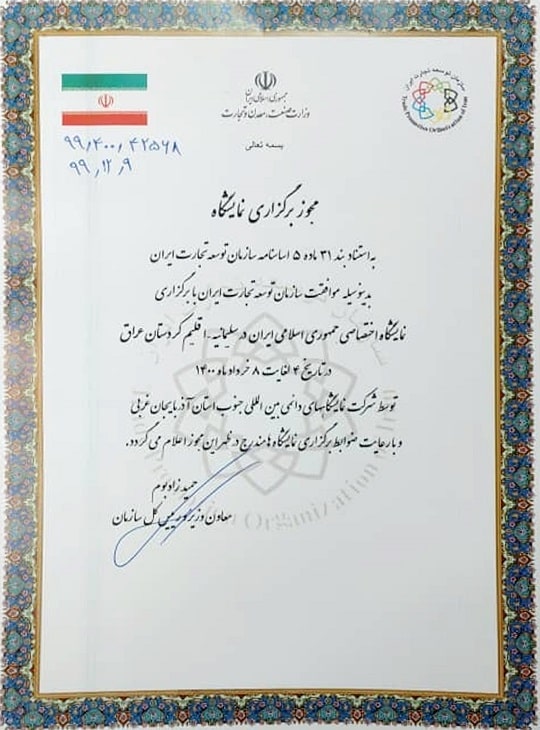 جمهوری اسلامی ایران
وزارت صنعت، معدن و تجارت
بسمه تعالی
سازمان توسعه تجارت ایران
Trade Promotion Organization of Iran
۹۹٫۴۰۰٫۴۲۵۶۸
۹۹٫۱۲٫۹
مجوز برگزاری نمایشگاه
به استناد بند ۳۱ ماده ۵ اساسنامه سازمان توسعه تجارت ایران
بدینوسیله موافقت سازمان توسعه تجارت ایران با برگزاری
نمایشگاه اختصاصی جمهوری اسلامی ایران در سلیمانیه - اقلیم کردستان عراق
در تاریخ ۴ لغایت ۸ خرداد ماه ۱۴۰۰
توسط شرکت نمایشگاههای دائمی بین المللی جنوب استان آذربایجان غربی
و با رعایت ضوابط برگزاری نمایشگاه ها مندرج در ظهر این مجوز اعلام می گردد.
حمید زادبوم
معاون وزیر و رییس کل سازمان